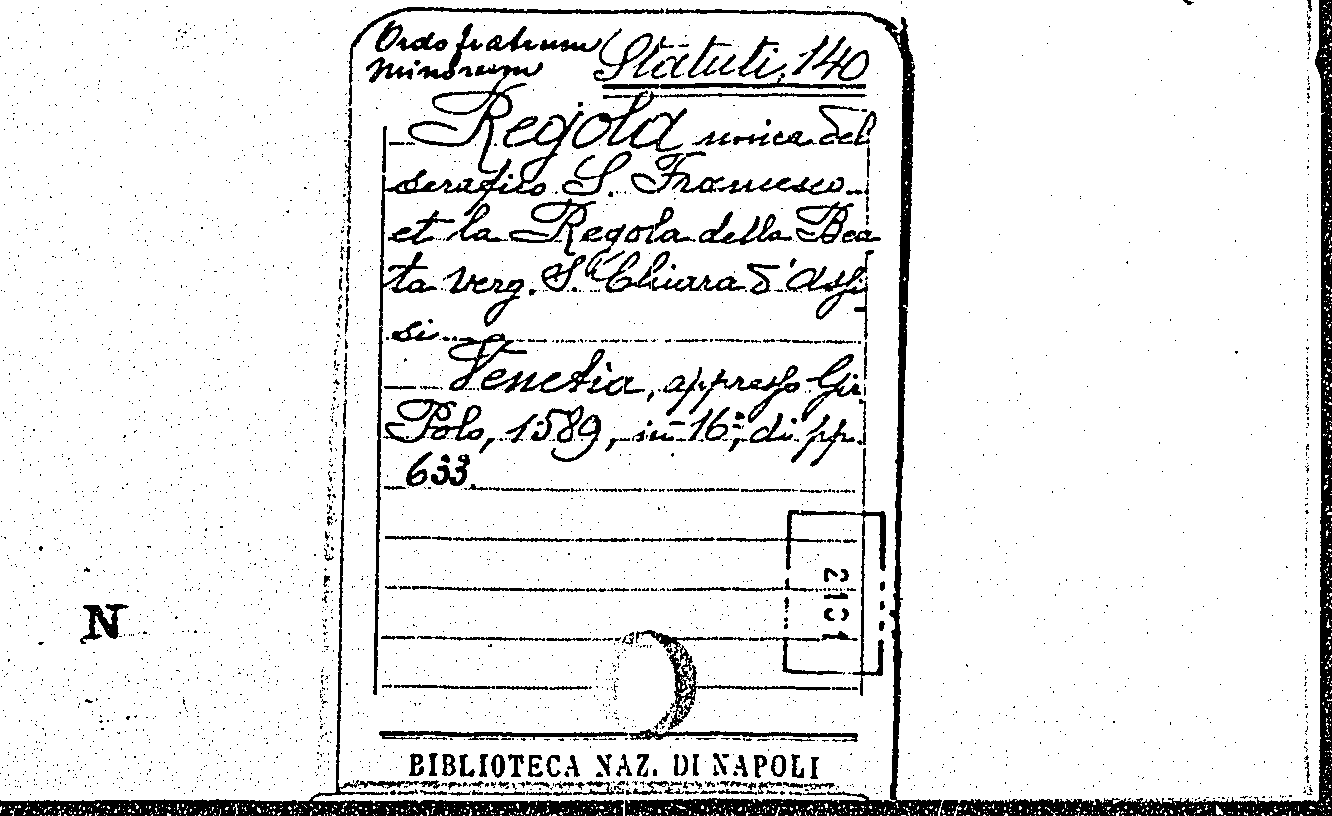 Ordo fratrum
Minorum
Statuti, 140
Regola unica del
serafico S. Francesco
et la Regola della Bea
ta verg. S.ᵃ Chiara d'Assi-
si
Venetia, appresso Gir.
Polo, 1589, in 16°, di pp.
633.
2101
N
BIBLIOTECA NAZ. DI NAPOLI